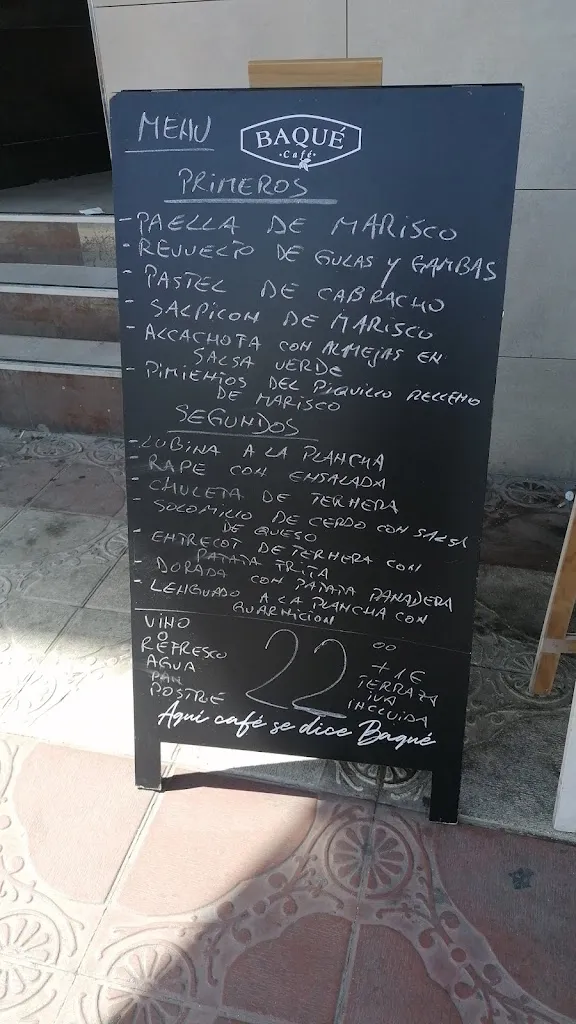 MENU
BAQUÉ
·Café·
PRIMEROS
- PAELLA DE MARISCO
- REVUELTO DE GULAS Y GAMBAS
- PASTEL DE CABRACHO
- SALPICON DE MARISCO
- ALCACHOFA CON ALMEJAS EN
SALSA VERDE
- PIMIENTOS DEL PIQUILLO RELLENO
DE MARISCO
SEGUNDOS
- LUBINA A LA PLANCHA
- RAPE CON ENSALADA
- CHULETA DE TERNERA
- SOLOMILLO DE CERDO CON SALSA
DE QUESO
- ENTRECOT DE TERNERA CON
PATATA FRITA
- DORADA CON PATATA PANADERA
- LENGUADO A LA PLANCHA CON
GUARNICION
VINO
O
REFRESCO
AGUA
PAN
POSTRE
22 00
+1€
TERRAZA
IVA
INCLUIDA
Aquí café se dice Baqué